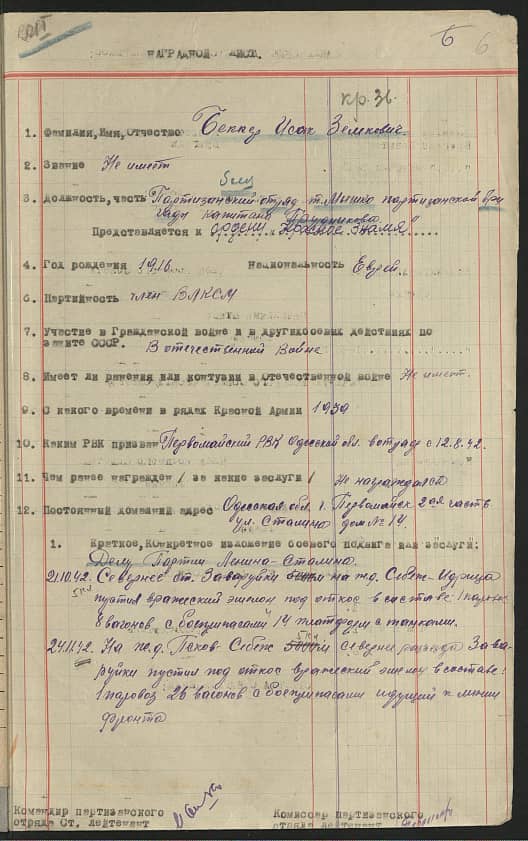 6 6
НАГРАДНОЙ ЛИСТ.
кр. Зн.
1. Фамилия, Имя, Отчество Беккер Исак Зелкович
2. Звание Не имеет
3. Должность, часть Партизанский отряд т. Мишко партизанской бри
гады капитана
Представляется к ордену "Красное Знамя"
4. Год рождения 1916 Национальность Еврей
6. Партийность член ВЛКСМ
7. Участие в Гражданской войне и в других боевых действиях по
защите СССР. В отечественной войне
8. Имеет ли ранения или контузии в Отечественной войне Не имеет.
9. С какого времени в рядах Красной Армии 1939
10. Каким РВК призван Первомайский РВК Одесской обл. в отряде с 12.8.42.
11. Чем ранее награжден / за какие заслуги / Не награждался
12. Постоянный домашний адрес Одесская обл. г. Первомайск 2ая часть
ул. Сталина дом № 14
1. Краткое, Конкретное изложение боевого подвига или заслуги:
Делу Партии Ленина-Сталина.
21.10.42. Севернее ст. Заваруйки на ж.д. Себеж-Идрица
5 км
пустил вражеский эшелон под откос в составе: 1 паровоз
8 вагонов с боеприпасами 14 платформ с танками.
24.11.42. На ж.д. Псков-Себеж 5 км севернее разъезда Зава-
руйки пустил под откос вражеский эшелон в составе:
1 паровоз 26 вагонов с боеприпасами идущий к линии
фронта
Командир партизанского Комиссар партизанского
отряда Ст. лейтенант отряда лейтенант